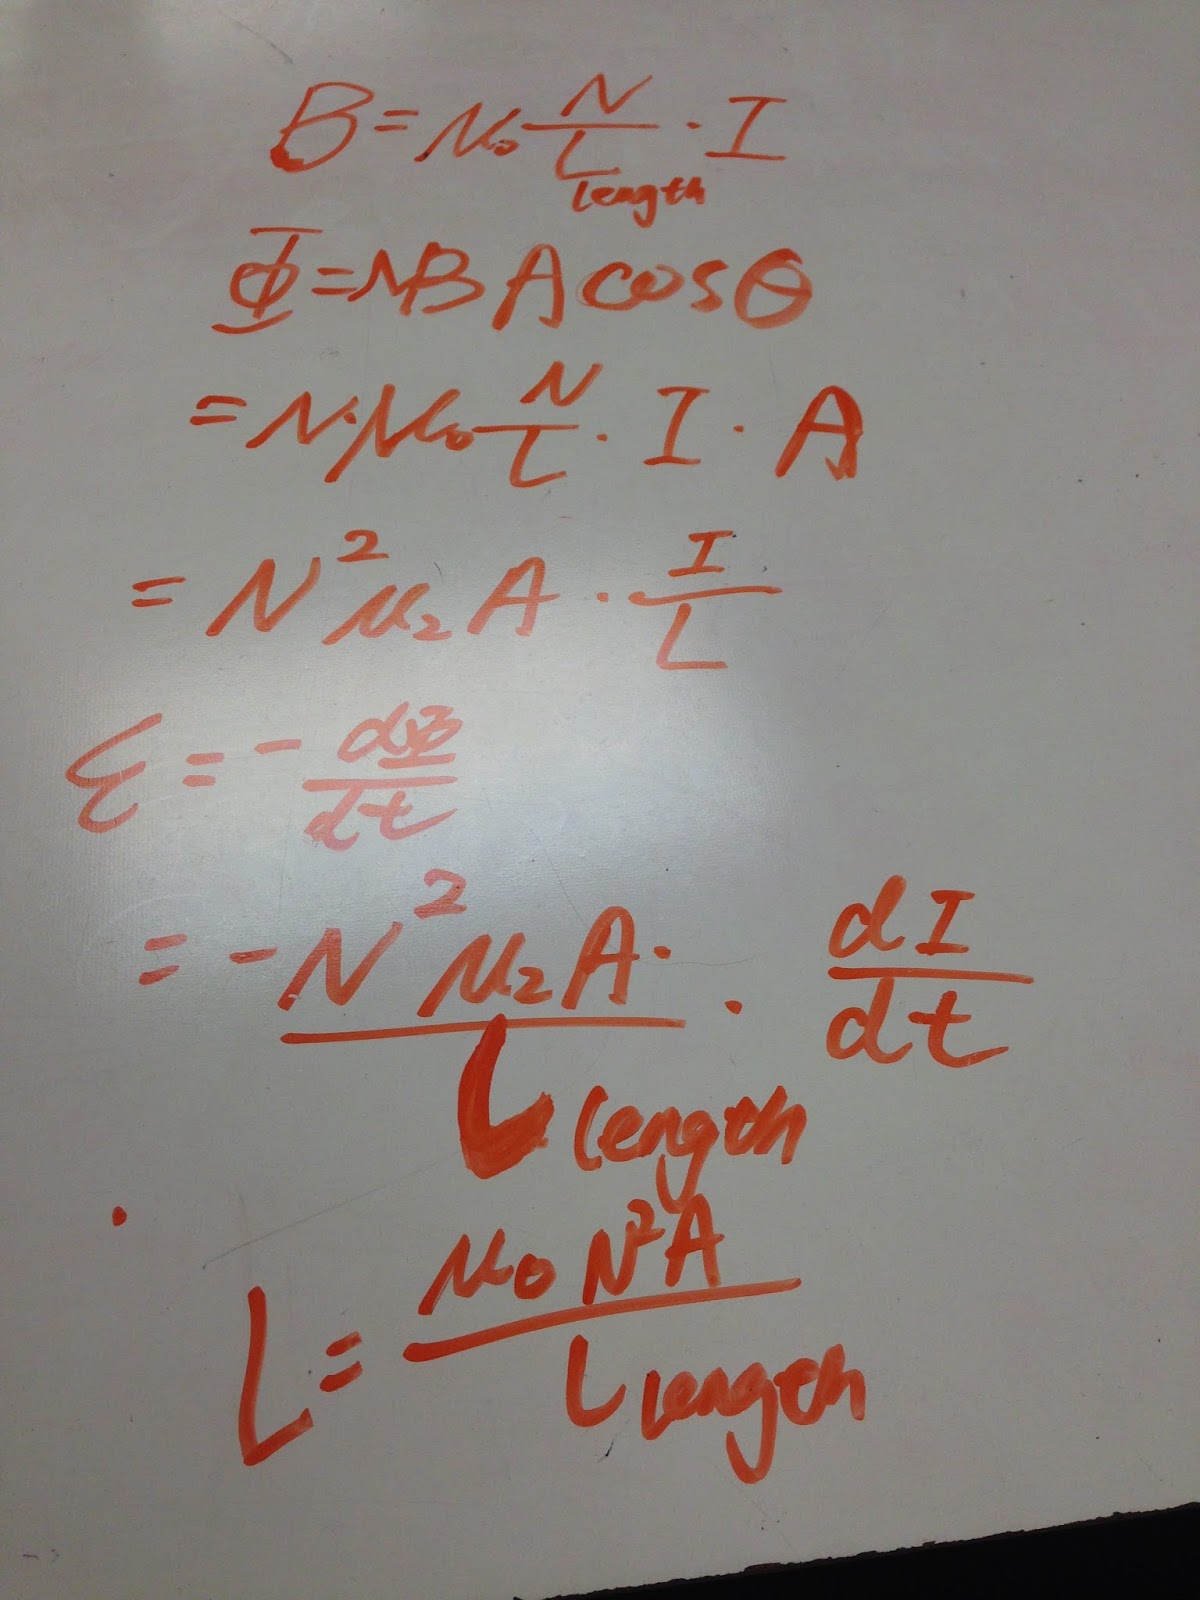 B = μ₀ N/L length · I
Φ = NBA cosθ
= N·μ₀ N/L · I · A
= N² μ₂ A · I/L
ε = - dΦ/dt
= - N² μ₂ A · / L length · dI/dt
L = μ₀ N² A / L length